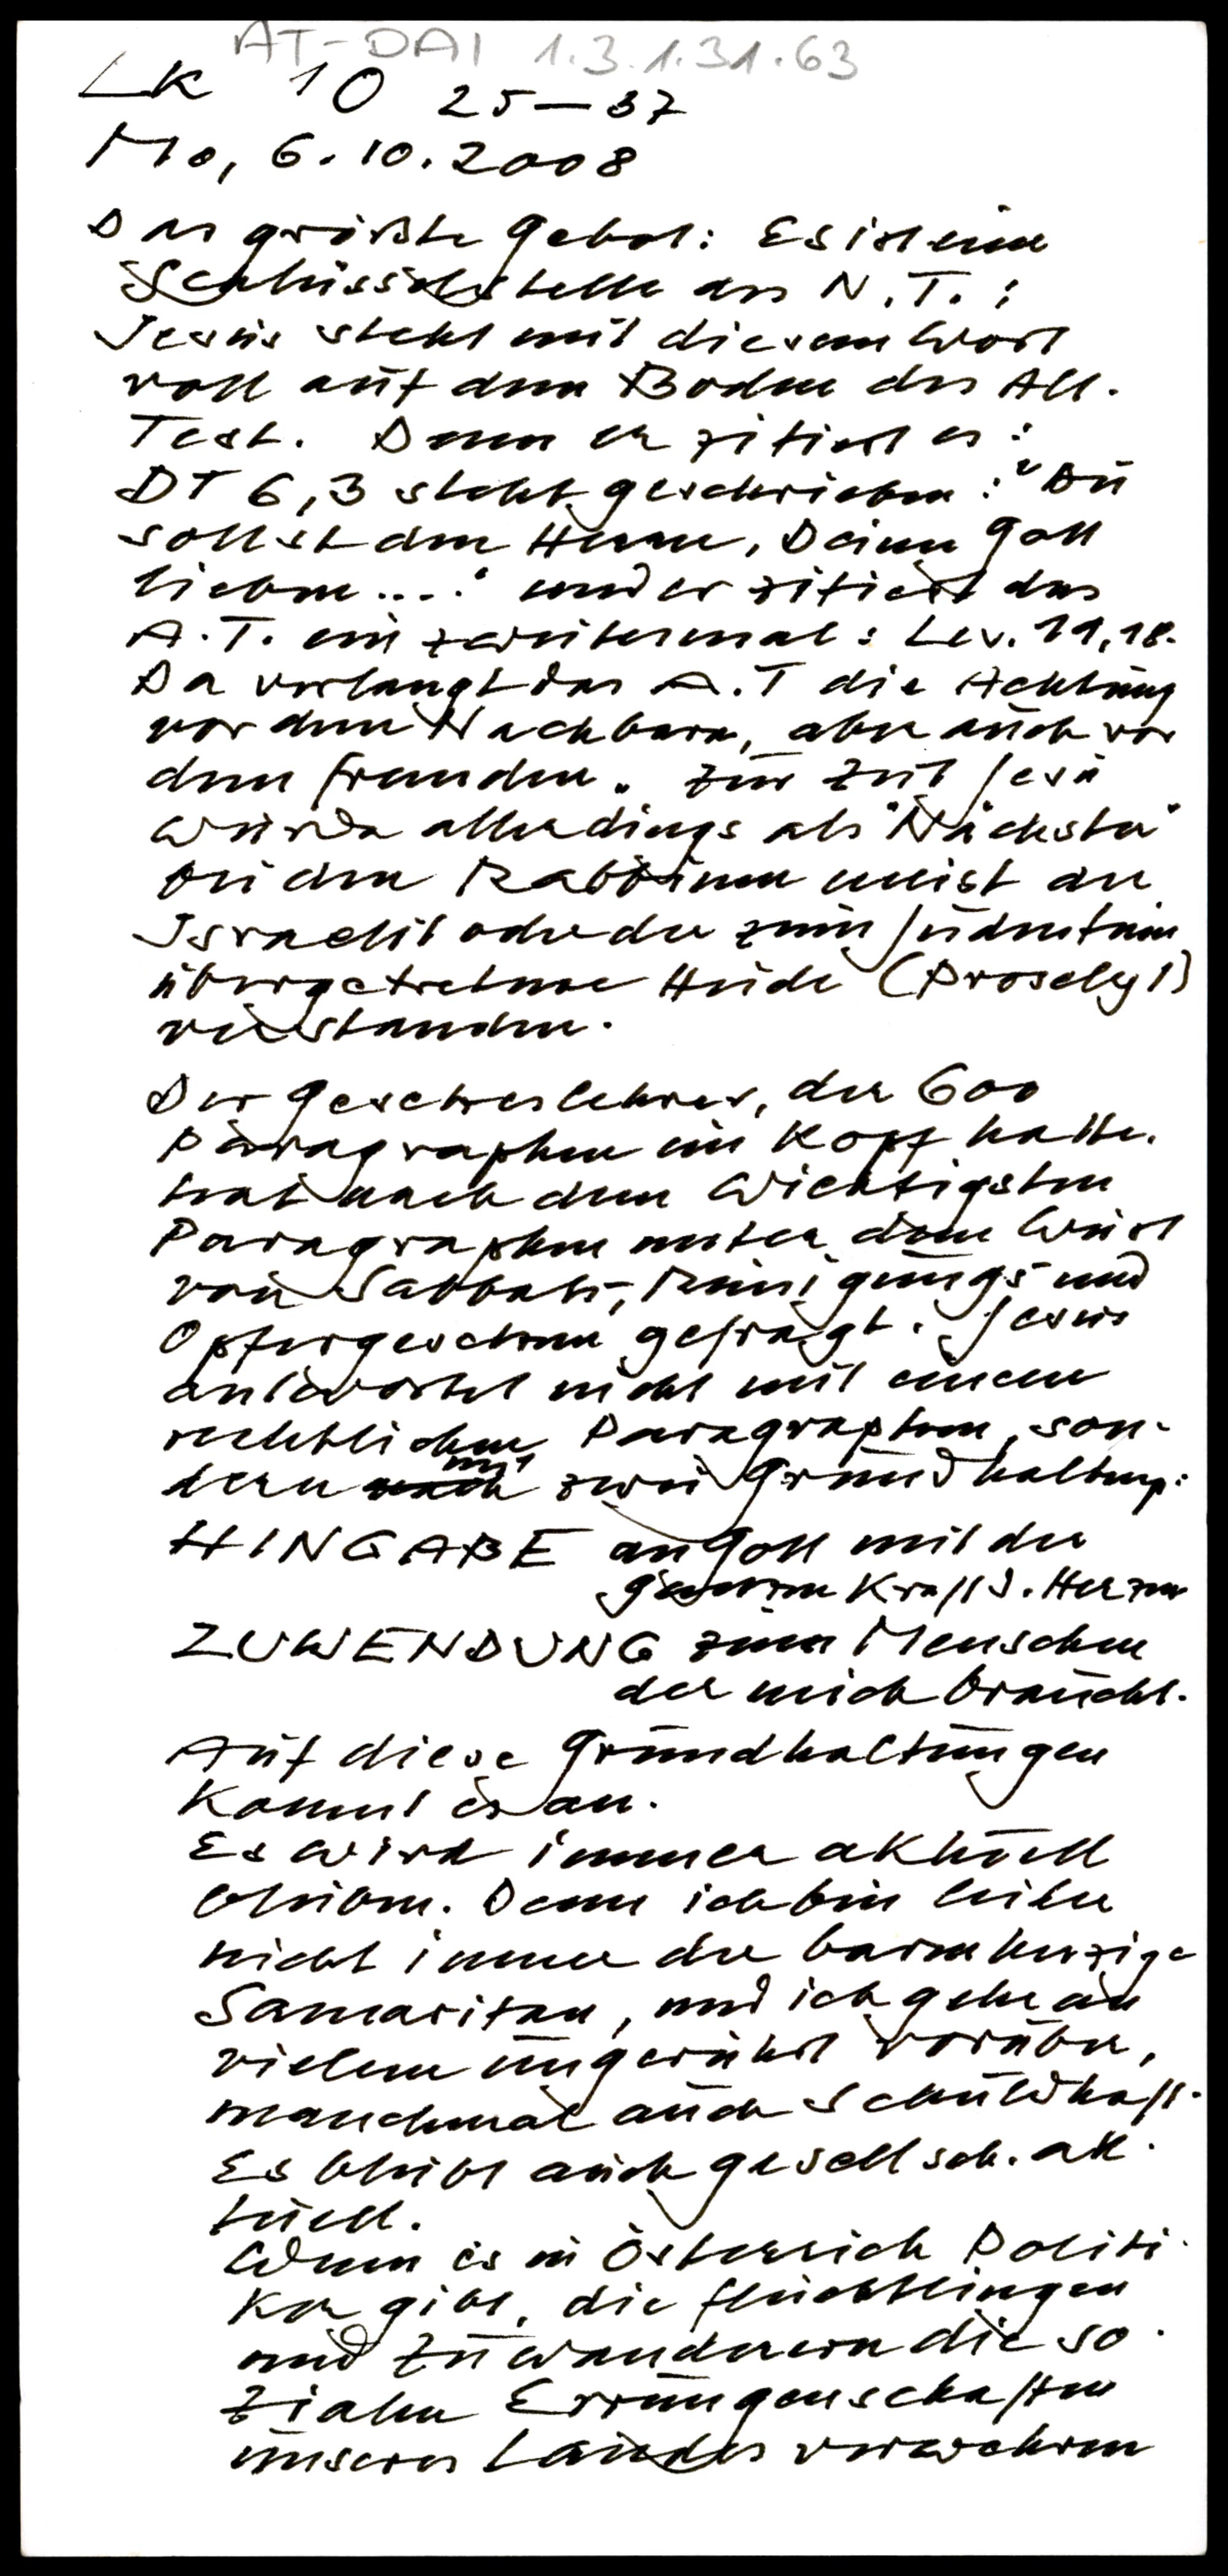 AT-DAI 1.3.1.31.63
Lk 10 25–37
Mo, 6.10.2008
Das größte Gebot: Es ist eine
Schlüsselstelle des N.T.:
Jesus steht mit diesem Wort
voll auf dem Boden des Alt.
Test. Denn er zitiert es:
DT 6,3 steht geschrieben: "Du
sollst den Herrn, Deinen Gott
lieben...." und er zitiert das
A.T. ein zweitesmal: Lev. 19,18.
Da verlangt das A.T die Achtung
vor dem Nachbarn, aber auch vor
dem Fremden. Zur Zeit Jesu
wurde allerdings als "Nächster"
bei den Rabbinen meist der
Israelit oder der zum Judentum
übergetretene Heide (Proselyt)
verstanden.
Der Gesetzeslehrer, der 600
Paragraphen im Kopf hatte,
hat nach dem Wichtigsten
Paragraphen unter dem Wust
von Sabbats-, Reinigungs- und
Opfergesetzen gefragt. Jesus
antwortet nicht mit einem
rechtlichen Paragraphen, son-
dern nach mit zwei Grundhaltung:
HINGABE an Gott mit der
ganzen Kraft d. Herzens
ZUWENDUNG zum Menschen
der mich braucht.
Auf diese Grundhaltungen
kommt es an.
Es wird immer aktuell
bleiben. Denn ich bin leider
nicht immer der barmherzige
Samaritan, und ich gehe an
vielem ungerührt vorüber,
manchmal auch schuldhaft.
Es bleibt auch gesellsch. ak-
tuell.
Wenn es in Österreich Politi-
ker gibt, die Flüchtlingen
und Zuwanderern die so-
zialen Errungenschaften
unseres Landes verwehren